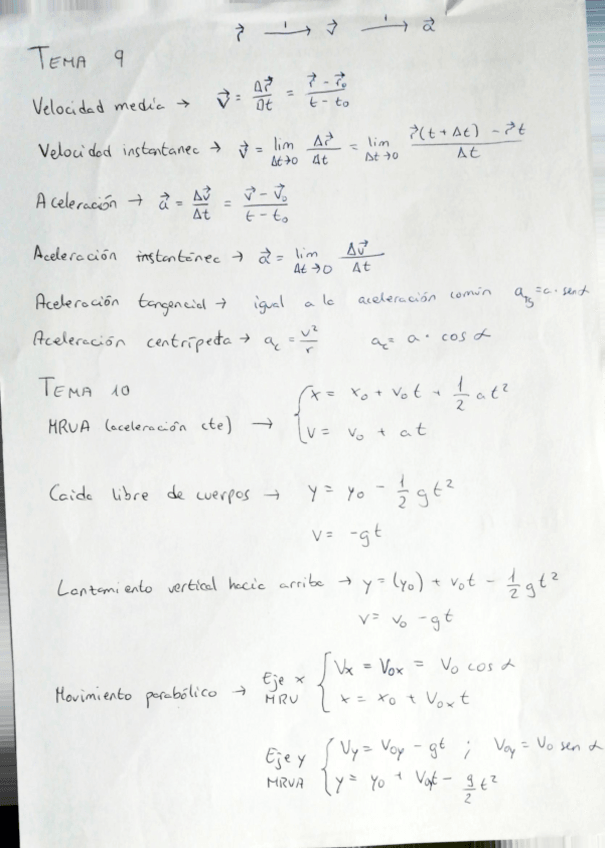 r⃗ —'→ v⃗ —'→ a⃗
TEMA 9
Velocidad media → v⃗ = Δr⃗/Δt = (r⃗ - r⃗₀)/(t - t₀)
Velocidad instantanea → v⃗ = lim Δt→0 Δr⃗/Δt = lim Δt→0 (r⃗(t + Δt) - r⃗t)/Δt
Aceleración → a⃗ = Δv⃗/Δt = (v⃗ - v⃗₀)/(t - t₀)
Aceleración instantánea → a⃗ = lim Δt→0 Δv⃗/Δt
Aceleración tangencial → igual a la aceleración común a_tg = a · sen α
Aceleración centrípeta → a_c = v²/r a_c = a · cos α
TEMA 10
MRUA (aceleración cte) → { x = x₀ + v₀t + 1/2 at²
v = v₀ + at
Caida libre de cuerpos → y = y₀ - 1/2 gt²
v = -gt
Lanzamiento vertical hacia arriba → y = (y₀) + v₀t - 1/2 gt²
v = v₀ - gt
Movimiento parabólico → Eje x MRU { Vx = V₀x = V₀ cos α
x = x₀ + V₀x t
Eje y MRUA { Vy = V₀y - gt ; V₀y = V₀ sen α
y = y₀ + V₀yt - g/2 t²